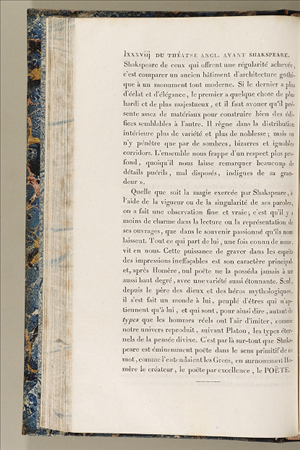 lxxxviij DU THÉATRE ANGL. AVANT SHAKSPEARE.
Shakspeare de ceux qui offrent une régularité achevée,
c'est comparer un ancien bâtiment d'architecture gothi-
que à un monument tout moderne. Si le dernier a plus
d'éclat et d'élégance, le premier a quelque chose de plus
hardi et de plus majestueux, et il faut avouer qu'il pré-
sente assez de matériaux pour construire bien des édi-
fices semblables à l'autre. Il règne dans la distribution
intérieure plus de variété et plus de noblesse; mais on
n'y pénètre que par de sombres, bizarres et ignobles
corridors. L'ensemble nous frappe d'un respect plus pro-
fond, quoiqu'il nous laisse remarquer beaucoup de
détails puérils, mal disposés, indignes de sa gran-
deur ».
Quelle que soit la magie exercée par Shakspeare, à
l'aide de la vigueur ou de la singularité de ses paroles,
on a fait une observation fine et vraie; c'est qu'il y a
moins de charme dans la lecture ou la représentation de
ses ouvrages, que dans le souvenir passionné qu'ils nous
laissent. Tout ce qui part de lui, une fois connu de nous,
vit en nous. Cette puissance de graver dans les esprits
des impressions ineffaçables est son caractère principal
et, après Homère, nul poëte ne la posséda jamais à un
aussi haut degré, avec une variété aussi étonnante. Seul,
depuis le père des dieux et des héros mythologiques,
il s'est fait un monde à lui, peuplé d'êtres qui n'ap-
tiennent qu'à lui, et qui sont, pour ainsi dire, autant de
types que les hommes réels ont l'air d'imiter, comme
notre univers reproduit, suivant Platon, les types éter-
nels de la pensée divine. C'est par là sur-tout que Shaks-
peare est éminemment poëte dans le sens primitif de ce
mot, comme l'entendaient les Grecs, en surnommant Ho-
mère le créateur, le poëte par excellence, le POËTE.